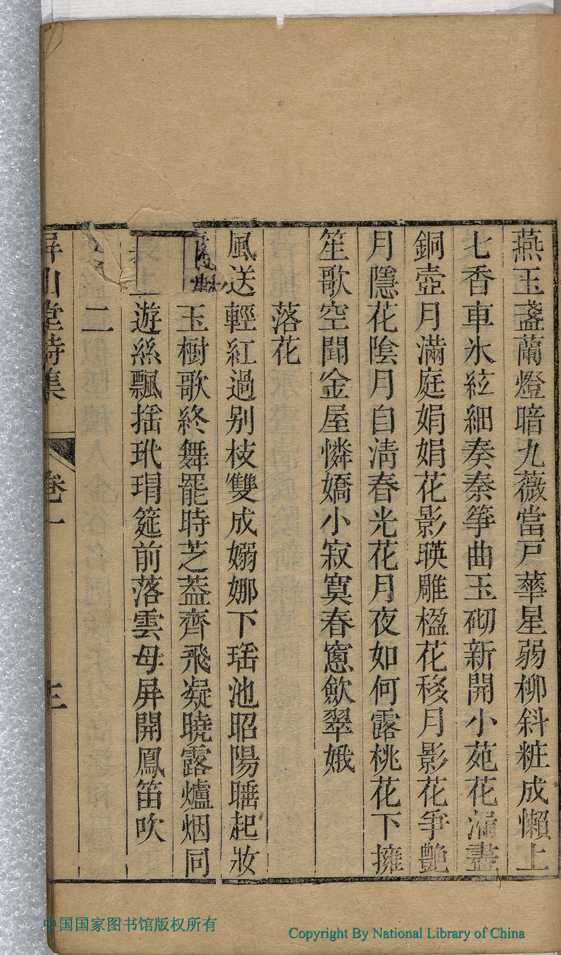 燕玉盞蘭燈暗九薇當戸華星弱柳斜粧成懶上
七香車氷絃細奏秦筝曲玉砌新開小苑花漏盡
銅壺月滿庭娟娟花影暎雕楹花移月影花爭艶
月隱花陰月自淸春光花月夜如何露桃花下擁
笙歌空聞金屋憐嬌小寂寞春窻歛翠娥
落花
風送輕紅過别枝雙成嫋娜下瑶池昭陽睡起妝
玉樹歌終舞罷時芝葢齊飛凝曉露爐烟同
上遊絲飄揺玳瑁筵前落雲母屏開鳳笛吹
二
屏山堂詩集
卷一
三
中国国家图书馆版权所有
Copyright By National Library of China